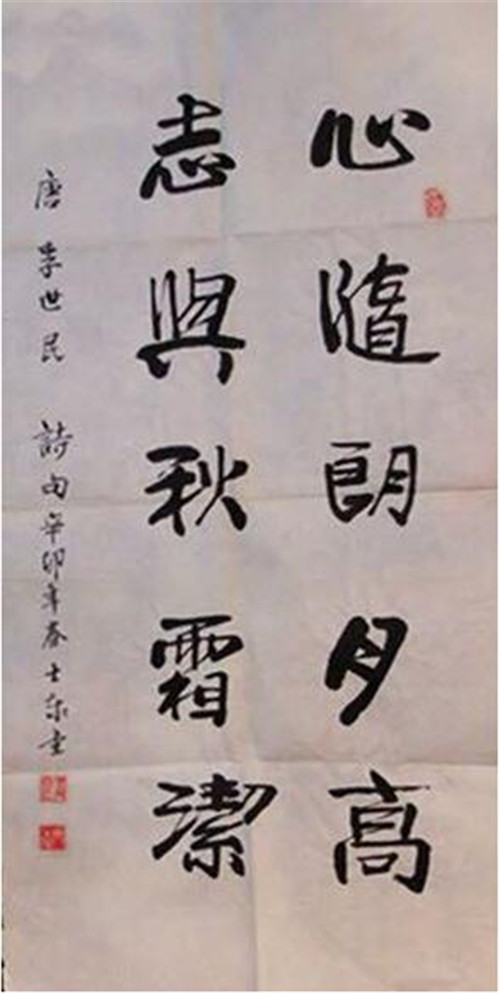 心隨朗月高
志與秋霜潔
唐李世民 詩句辛卯年春士東書